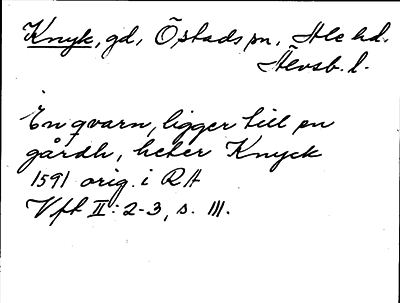 Knyk, gd, Östads sn, Ale hd.
Älvsb. l.
En qvarn, ligger till sn
gårdh, heter Knyck
1591 orig. i RA
Vft II: 2-3, s. 111.